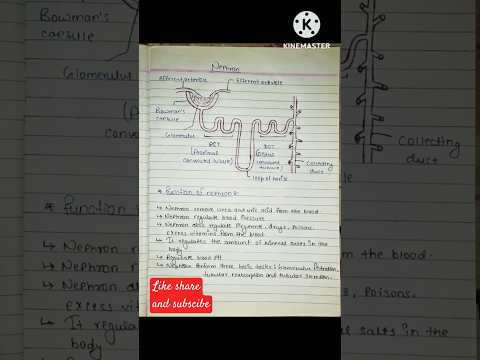 Bowman's
capsule
Glomerulus
(Pro
convolu
* Function
↳ Nephron
↳ Nephron
↳ Nephron
excess v
↳ It regula
body
KINEMASTER
Nephron
Afferent arteriole
Efferent arteriole
Bowman's
capsule
Glomerulus
PCT
(Proximal
convoluted tubule)
DCT
(Distal
convoluted
tubule)
Loop of henle
Collecting
duct
* Function of nephron :-
↳ Nephron remove urea and uric acid from the blood
↳ Nephron regulate blood pressure
↳ Nephron also regulate Pigments, drugs, Poisons
excess vitamins from the blood
↳ It regulates the amount of mineral salts in the
body
↳ Regulate blood PH
↳ Nephron Perform three basic tasks : Glomerular filtration,
tubular reabsorption and tubular secretion.
Like share
and subscibe
Collecting
duct
the blood.
Poisons.
salts in the